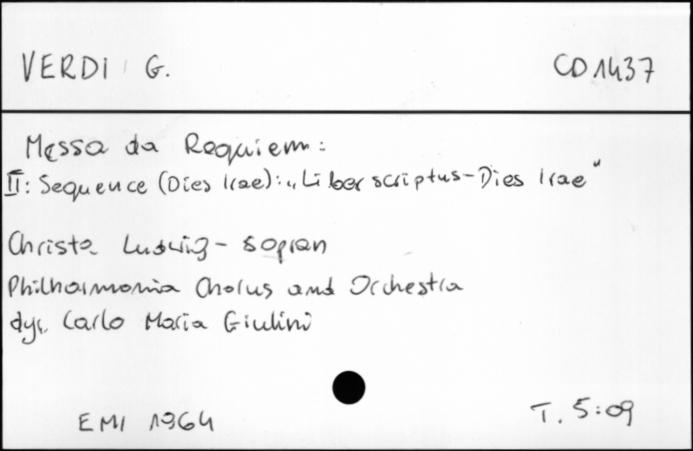 VERDI G.
CD 1437
Messa da Requiem:
II: Sequence (Dies Irae): „Liber scriptus - Dies Irae"
Christa Ludwig - sopran
Philharmonia Chorus and Orchestra
dyr. Carlo Maria Giulini
EMI 1964
T. 5:09